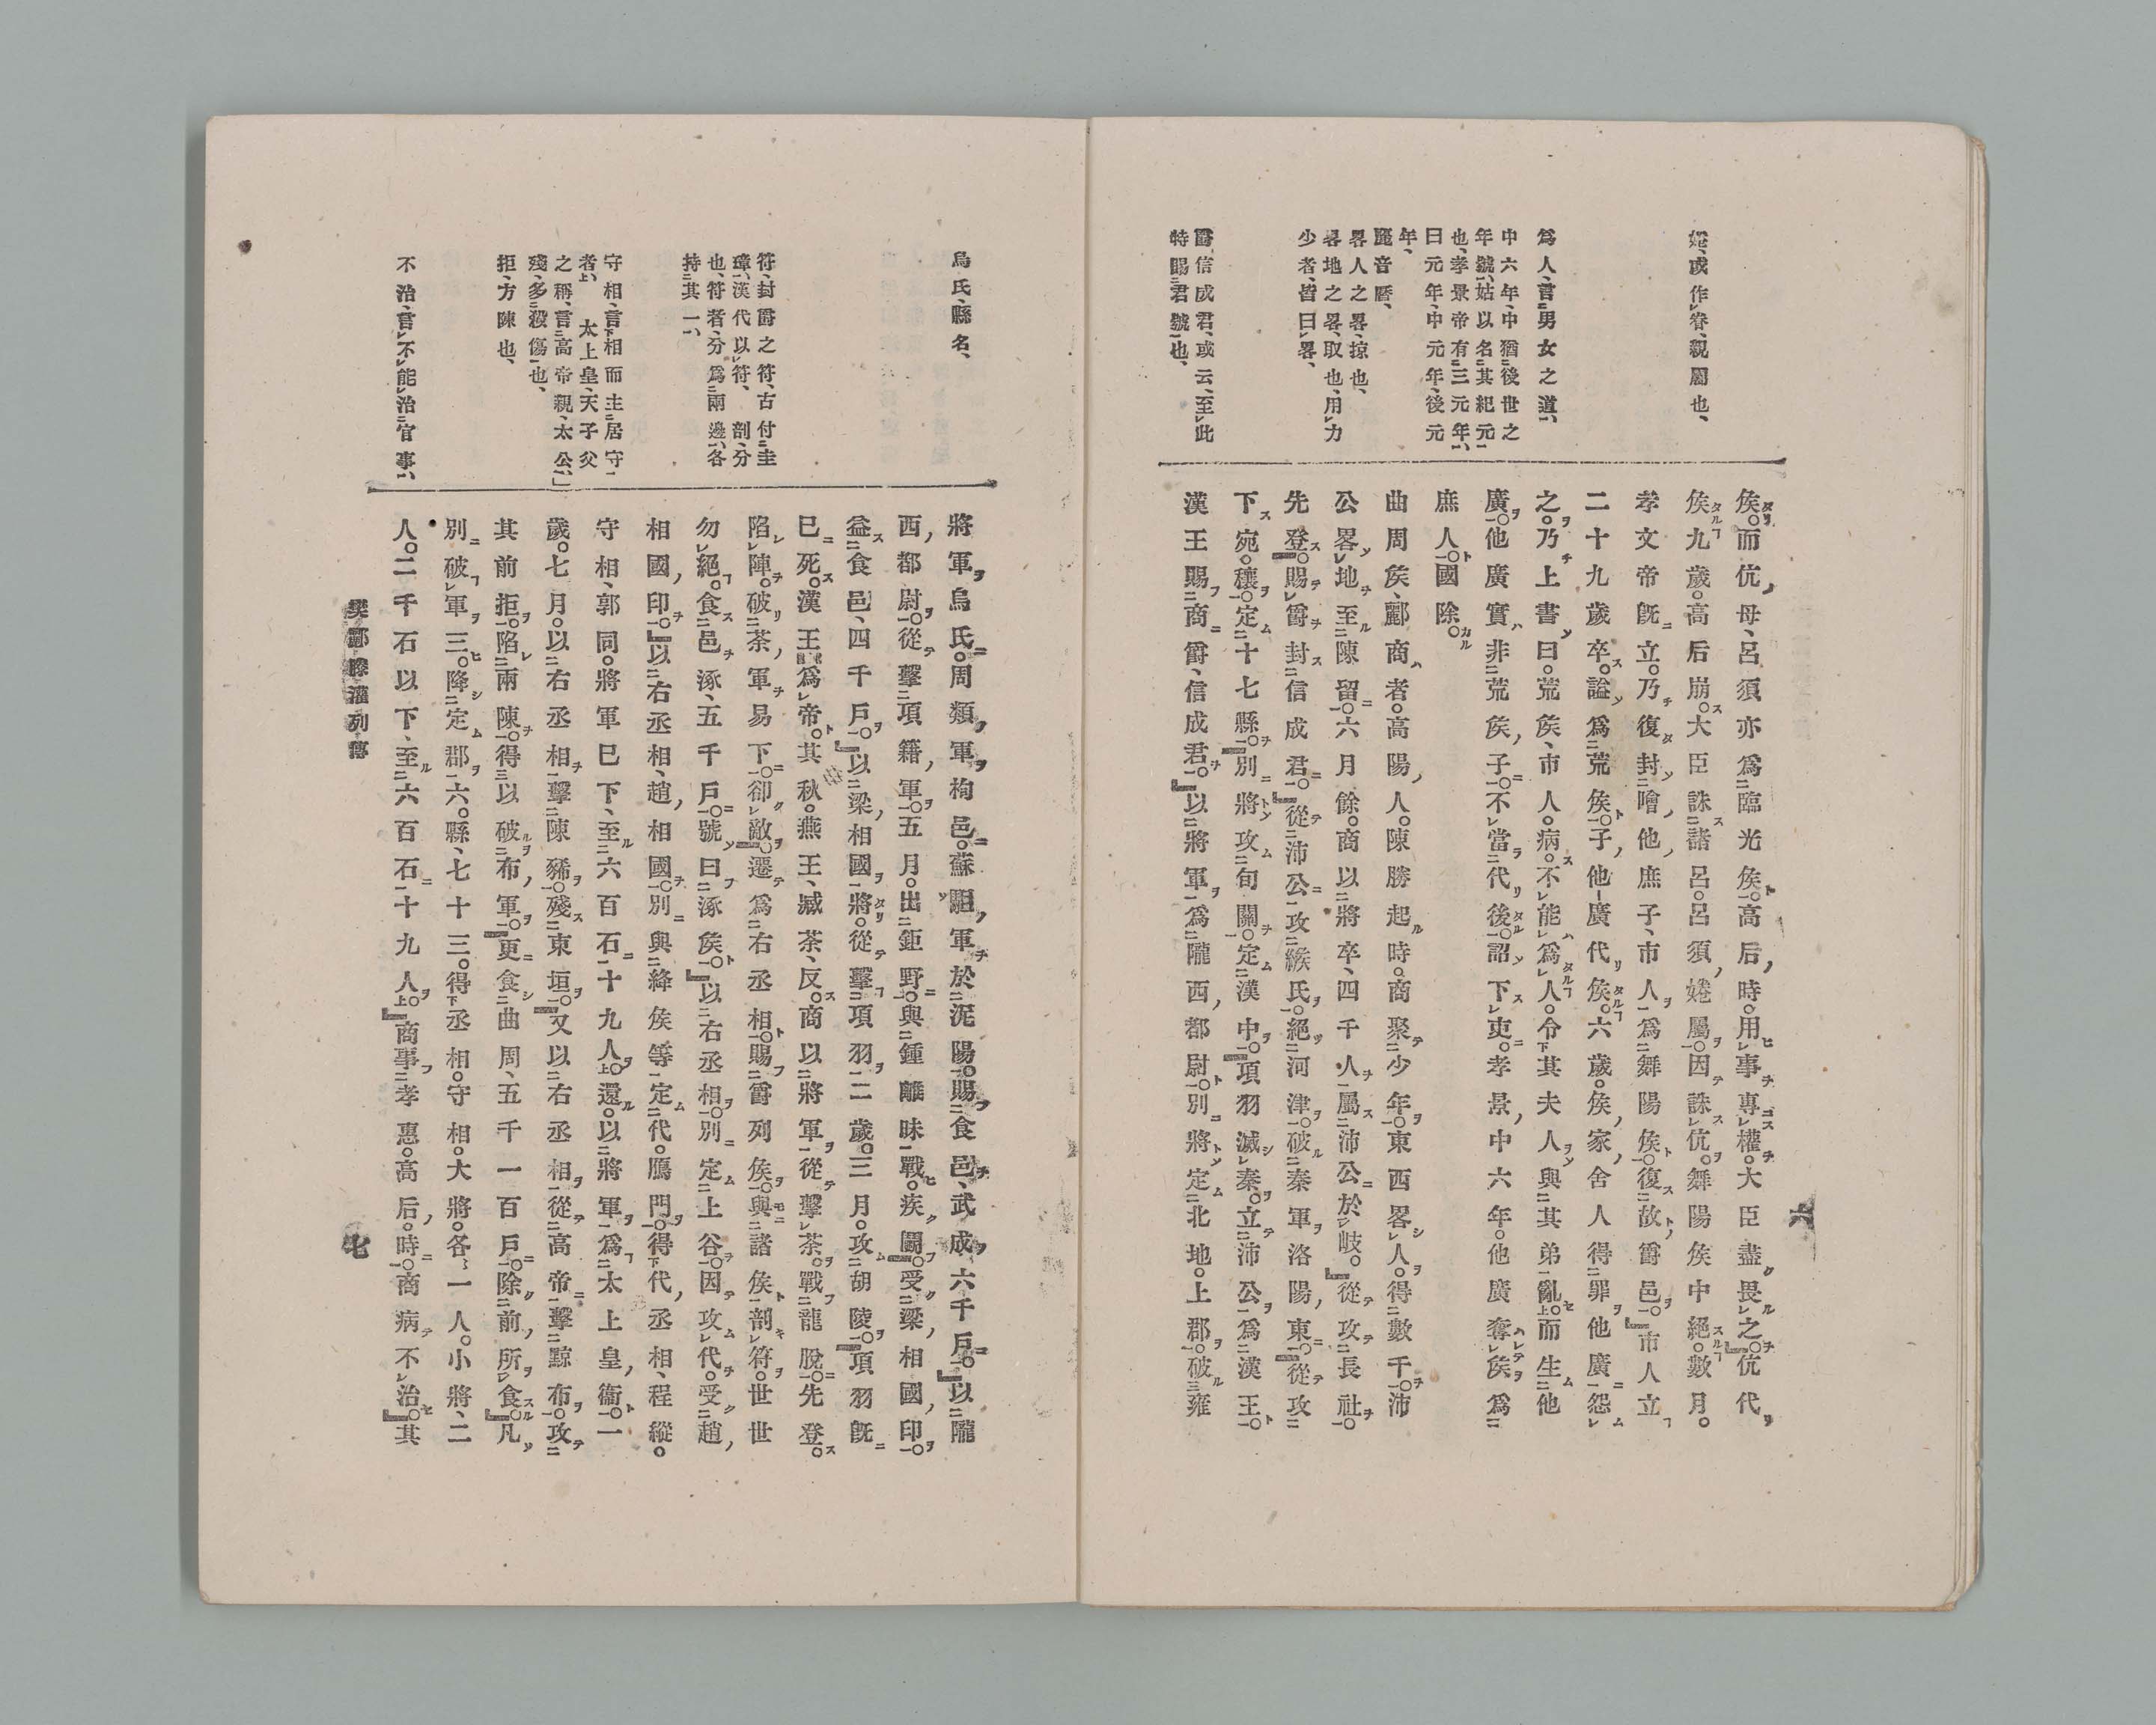 婘、或作卷、親屬也、
爲人、言男女之道、
中六年、中猶後世之
年號、姑以名其紀元
也、孝景帝有三元年、
曰元年、中元年、後元
年、
酈音曆、
畧人之畧、掠也、
畧地之畧、取也、用力
少者、皆曰畧、
爵、信成君、或云、至此
特賜君號也、
侯。而伉母、呂須亦爲臨光侯。高后時。用事專權。大臣盡畏之。伉代
侯九歲。高后崩。大臣誅諸呂。呂須婘屬。因誅伉。舞陽侯中絕。數月。
孝文帝旣立。乃復封噲他庶子、市人爲舞陽侯。復故爵邑。市人立
二十九歲卒。謚爲荒侯。子他廣代侯。六歲。侯家舍人得罪他廣怨
之。乃上書曰。荒侯、市人。病。不能爲人。令其夫人與其弟亂。而生他
廣。他廣實非荒侯子。不當代後。詔下吏。孝景中六年。他廣奪侯爲
庶人。國除。
曲周侯、酈商者。高陽人。陳勝起時。商聚少年。東西畧人。得數千。沛
公畧地至陳留。六月餘。商以將卒、四千人屬沛公於岐。從攻長社。
先登。賜爵封信成君。從沛公攻緱氏。絕河津。破秦軍洛陽東。從攻
下宛。穰。定十七縣。別將攻旬關。定漢中。項羽滅秦。立沛公爲漢王。
漢王賜商爵、信成君。以將軍爲隴西都尉。別將定北地。上郡。破雍
六
烏氏、縣名、
符、封爵之符、古付圭
璋、漢代以符、剖、分
也、符者、分爲兩邊、各
持其一、
守相、言相而主居守
者、太上皇、天子父
之稱、言高帝親、太公、
殘、多殺傷也、
拒、方陳也、
不治、言不能治官事、
將軍烏氏。周類軍栒邑。蘇駔軍於泥陽。賜食邑、武成六千戶。以隴
西都尉。從擊項籍軍。五月。出鉅野。與鍾離眛戰。疾鬭。受梁相國印。
益食邑、四千戶。以梁相國將。從擊項羽二歲。三月。攻胡陵。項羽旣
已死。漢王爲帝。其秋。燕王、臧荼、反。商以將軍從擊荼。戰龍脫。先登。
陷陣。破荼軍易下。卻敵。遷爲右丞相。賜爵列侯。與諸侯剖符。世世
勿絕。食邑涿、五千戶。號曰涿侯。以右丞相。別定上谷。因攻代。受趙
相國印。以右丞相、趙相國。別與絳侯等定代。鴈門。得代丞相、程縱。
守相、郭同。將軍已下、至六百石十九人。還。以將軍爲太上皇衞。一
歲。七月。以右丞相擊陳豨。殘東垣。又以右丞相從高帝擊黥布。攻
其前拒。陷兩陳。得以破布軍。更食曲周、五千一百戶。除前所食。凡
別破軍三。降定郡六。縣、七十三。得丞相。守相。大將。各一人。小將、二
人。二千石以下、至六百石十九人。商事孝惠。高后時。商病不治。其
樊酈滕灌列傳
七